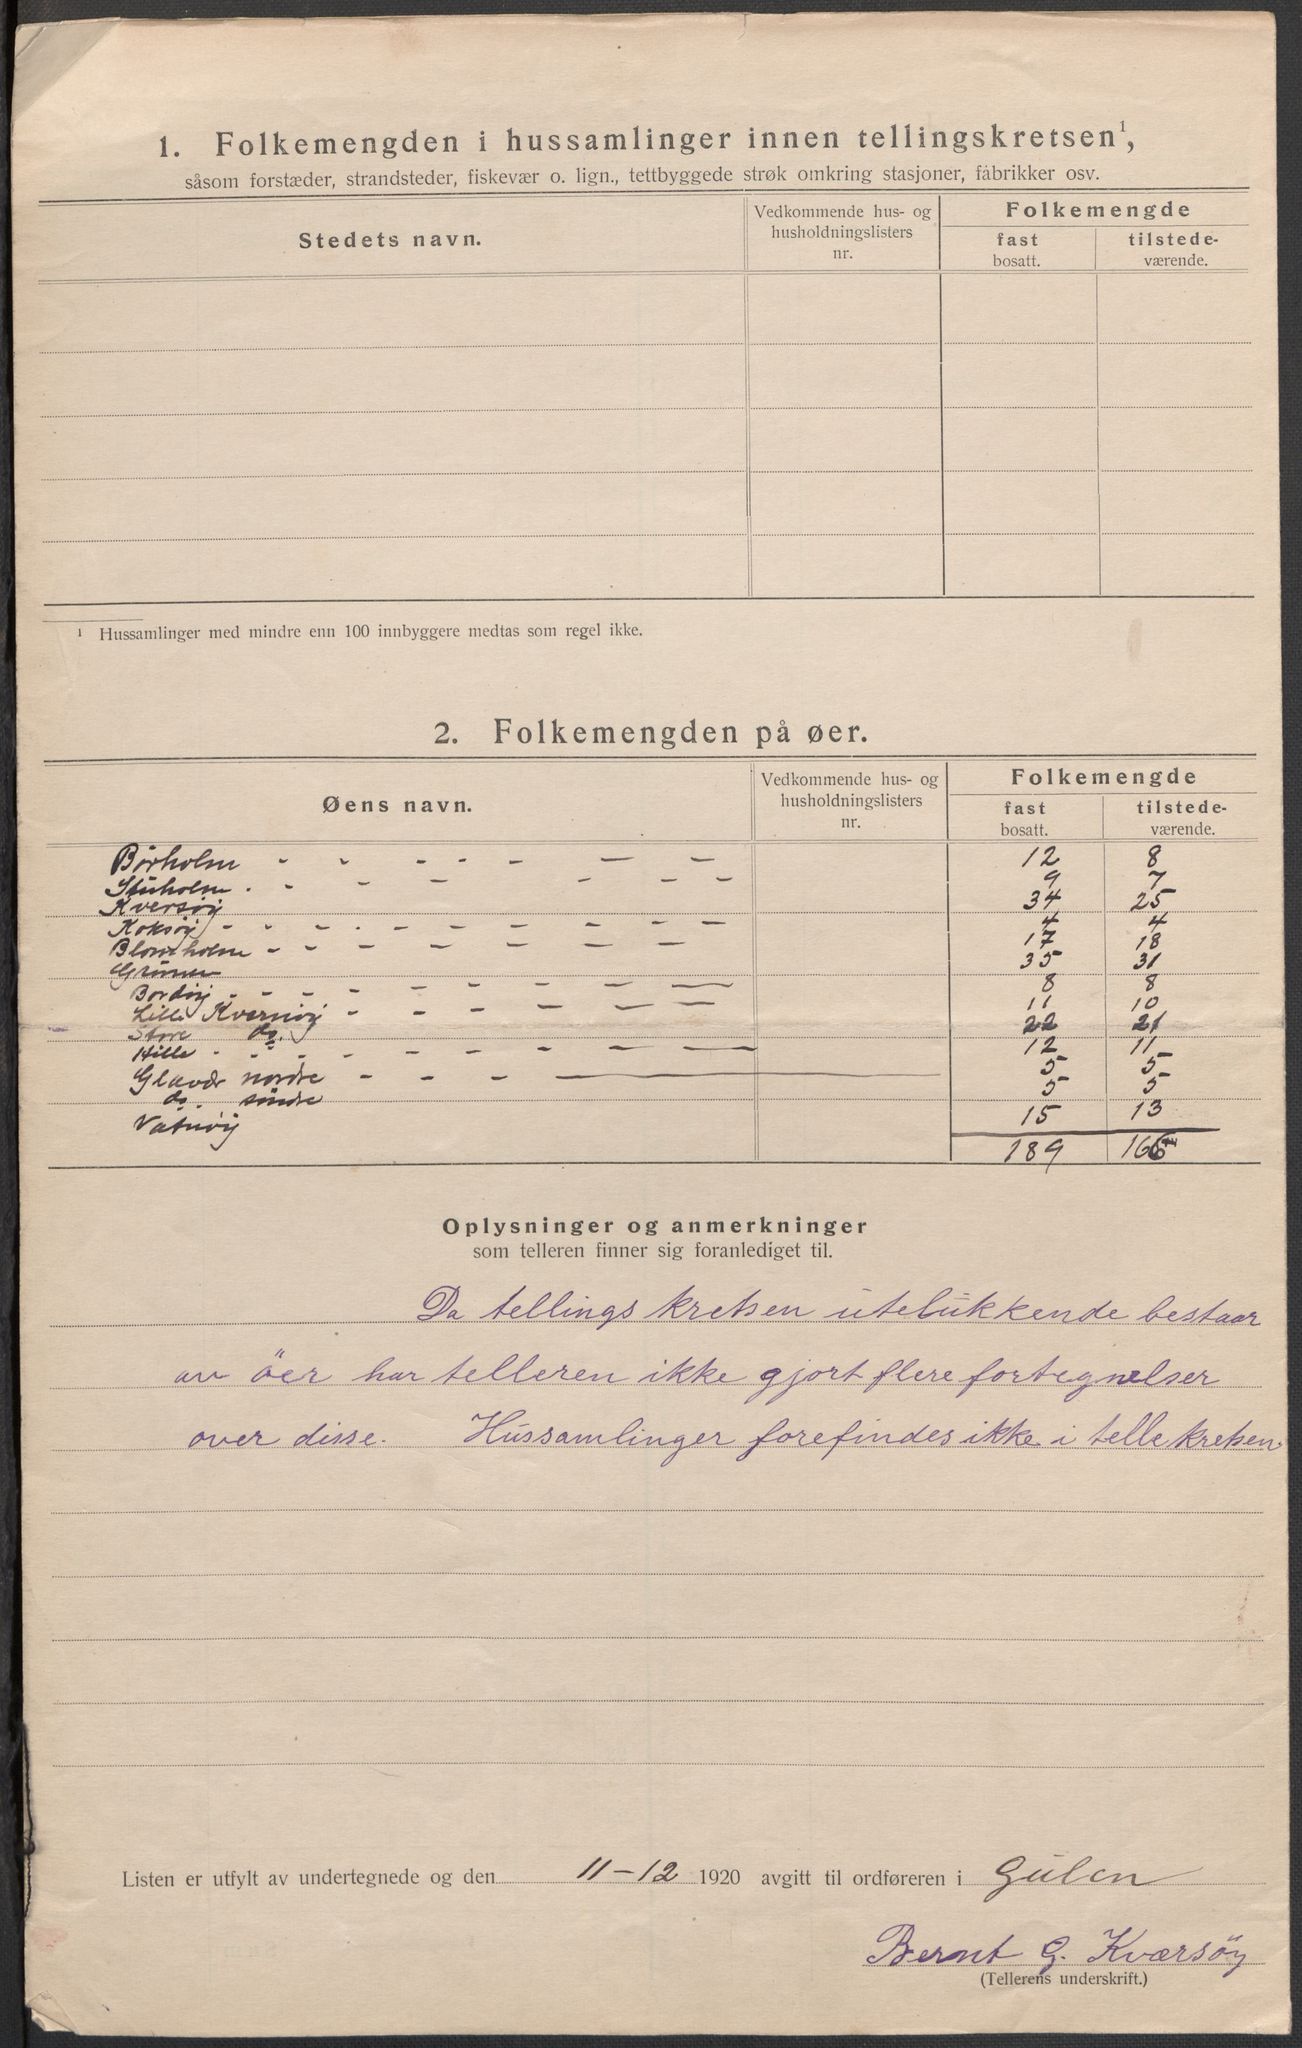 1. Folkemengden i hussamlinger innen tellingskretsen¹,
såsom forstæder, strandsteder, fiskevær o. lign., tettbyggede strøk omkring stasjoner, fabrikker osv.
Stedets navn. Vedkommende hus- og husholdningslisters nr. Folkemengde
fast bosatt. tilstede-værende.
¹ Hussamlinger med mindre enn 100 innbyggere medtas som regel ikke.
2. Folkemengden på øer.
Øens navn. Vedkommende hus- og husholdningslisters nr. Folkemengde
fast bosatt. tilstede-værende.
Børholm - - - - - - - 12 8
9 7
Kversøy 34 25
Koksøy - - - - - - - - 4 4
17 18
35 31
Bordøy - - - - - - - 8 8
Lille Kversøy - - - - - - 11 10
Store do. 22 21
Hille - - - - - - - - 12 11
Glavær nordre - - - - 5 5
do. søndre 5 5
Vatnøy 15 13
189 166
Oplysninger og anmerkninger
som telleren finner sig foranlediget til.
Da tellings kretsen utelukkende bestaar
av öer har telleren ikke gjort flere fortegnelser
over disse. Hussamlinger forefindes ikke i telle kretsen
Listen er utfylt av undertegnede og den 11-12 1920 avgitt til ordføreren i Gulen
Bernt G. Kværsöy
(Tellerens underskrift.)